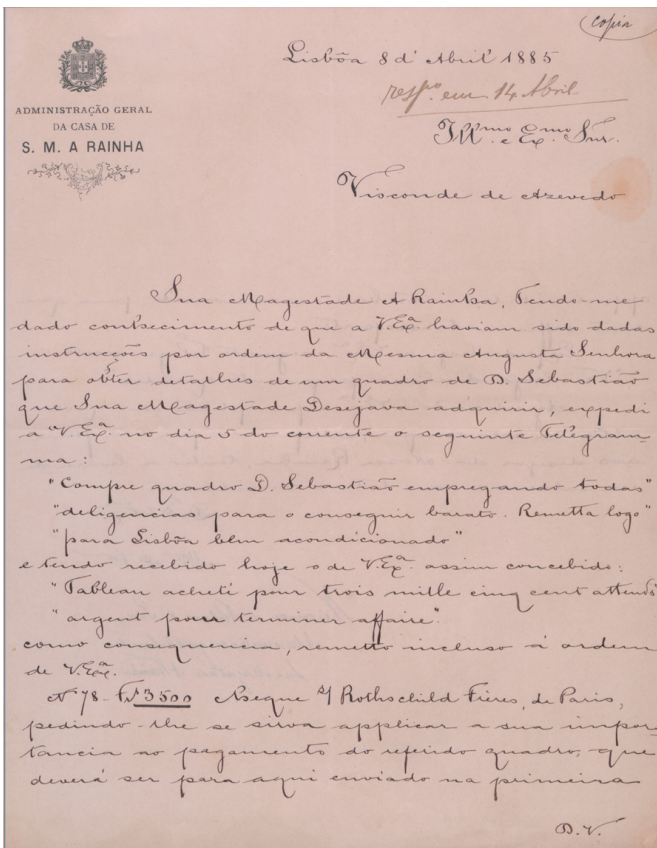 (copia)
Lisbõa 8 d' Abril 1885
resp.o em 14 Abril
ADMINISTRAÇÃO GERAL
DA CASA DE
S. M. A RAINHA
Ill.mo e Ex.mo Snr.
Visconde de Azevedo
Sua Magestade A Rainha, Tendo-me
dado conhecimento de que a V.Ex.a haviam sido dadas
instrucções por ordem da Mesma Augusta Senhora
para obter detalhes de um quadro de D. Sebastião
que Sua Magestade Desejava adquirir, expedi
a V.Ex.a no dia 5 do corrente o seguinte Telegram-
ma:
"Compre quadro D. Sebastião empregando todas"
"deligencias para o conseguir barato. Remetta logo"
"para Lisbôa bem acondicionado"
e tendo recebido hoje o de V.Ex.a assim concebido:
"Tableau acheté pour trois mille cinq cent attends"
"argent pour terminer affaire".
como consequencia, remetto incluso á ordem
de V.Ex.a
Nº 78 - 3500 s/ Rothschild Frères, de Paris,
pedindo-lhe se sirva applicar a sua impor-
tancia ao pagamento do referido quadro, que
deverá ser para aqui enviado na primeira
D.V.